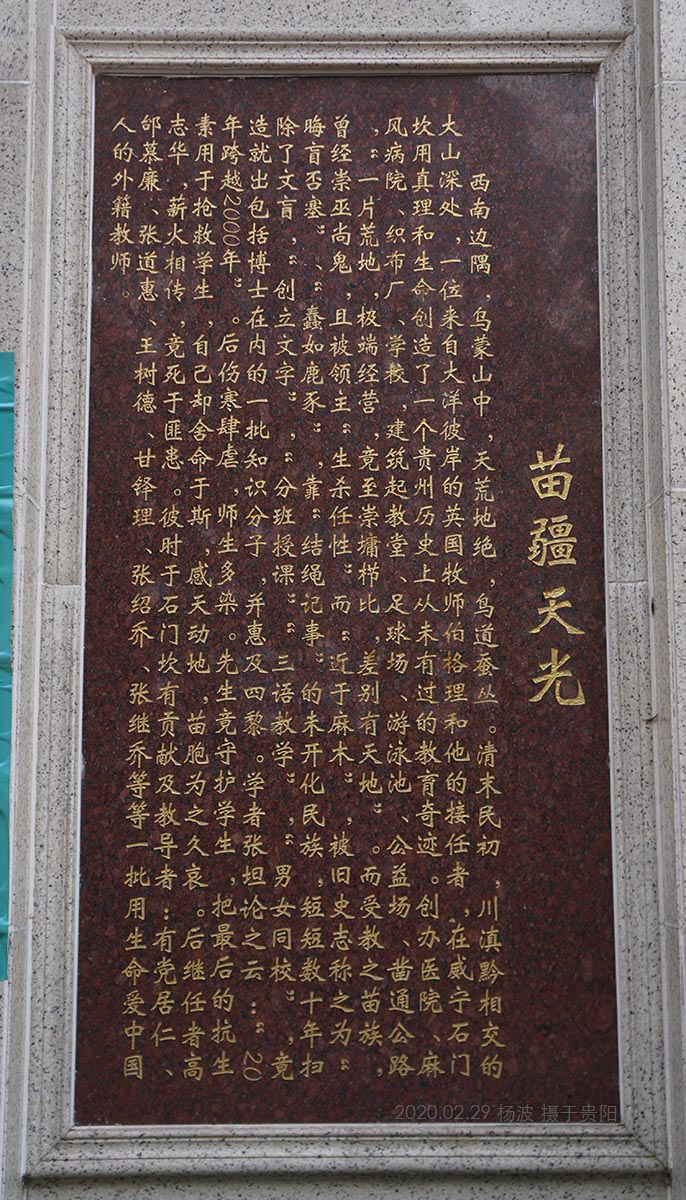 苗疆天光
西南边隅，乌蒙山中，天荒地绝，鸟道蚕丛。清末民初，川滇黔相交的
大山深处，一位来自大洋彼岸的英国牧师伯格理和他的接任者，在威宁石门
坎用真理和生命创造了一个贵州历史上从未有过的教育奇迹。创办医院、麻
风病院、织布厂、学校，建筑起教堂、足球场、游泳池、公益场、凿通公路
，“一片荒地，极端经营，竟至崇墉栉比，差别有天地”。而受教之苗族，
曾经崇巫尚鬼，且被领主“生杀任性”而“近于麻木”，被旧史志称之为“
晦盲否塞”、“蠢如鹿豕”，靠“结绳记事”的未开化民族，短短数十年扫
除了文盲，“创立文字”，“分班授课”“三语教学”，“男女同校”，竟
造就出包括博士在内的一批知识分子，并惠及四黎。学者张坦论之云：“20
年跨越2000年”。后伤寒肆虐，师生多染。先生竟守护学生，把最后的抗生
素用于抢救学生，自己却舍命于斯，感天动地，苗胞为之久哀。后继任者高
志华，薪火相传，竟死于匪患。彼时于石门坎有贡献及教导者：有党居仁、
邰慕廉、张道惠、王树德、甘铎理、张绍乔、张继乔等等一批用生命爱中国
人的外籍教师。
2020.02.29 杨波 摄于贵阳